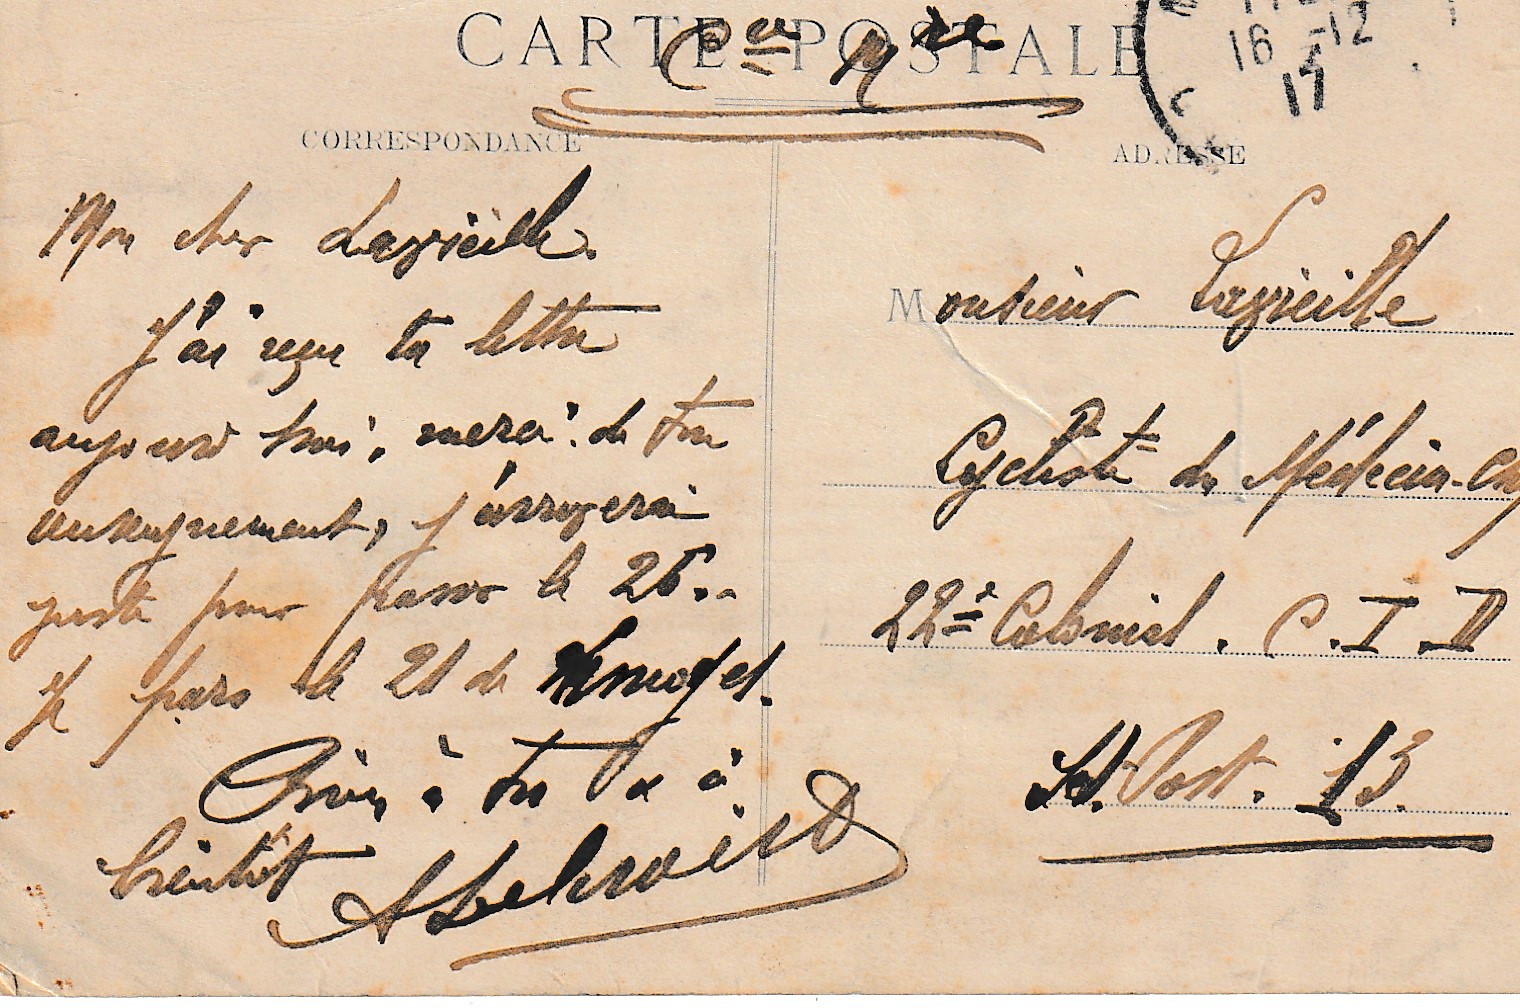 CARTE POSTALE
Cce Mre
16 -12
17
CORRESPONDANCE
ADRESSE
Mon cher Lavieille.
J'ai reçu ta lettre
aujourd'hui, merci de ton
enseignement, j'arriverai
juste pour passer le 26..
Je pars le 21 de Limoges.
Bien à toi et à
bientôt
Monsieur Lavieille
Cycliste du Médecin-Chf
22e Colonial. C.I.D
St. Post. 13.